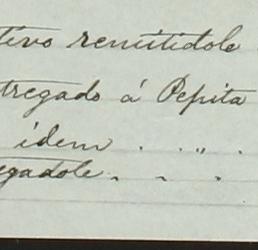 tivo remitidole
tregado á Pepita
idem . . „ .
egadole . . .